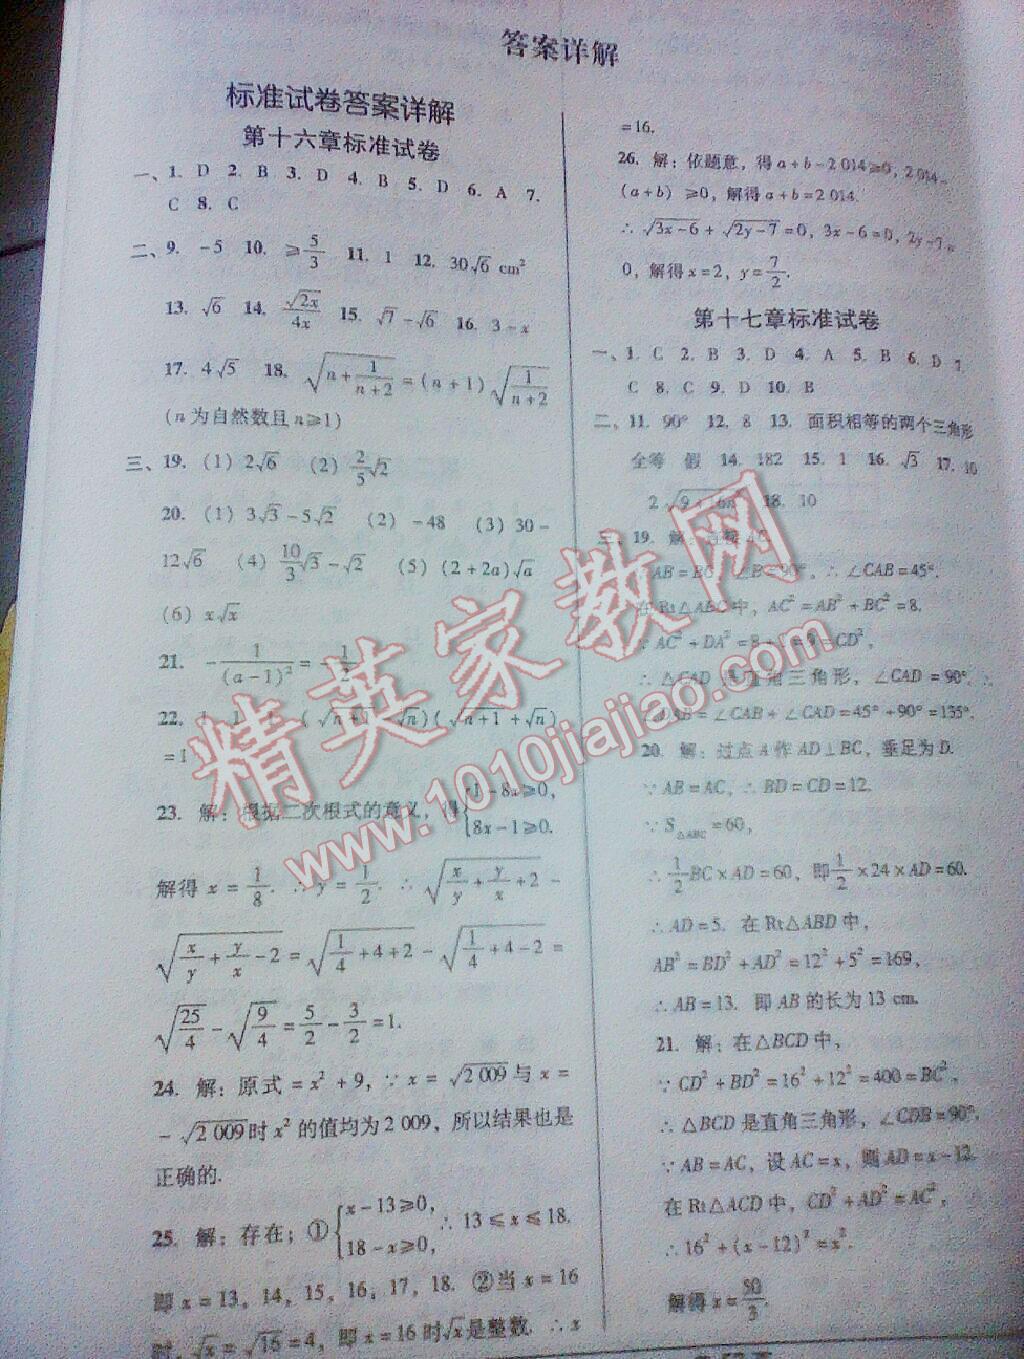 答案详解
标准试卷答案详解
第十六章标准试卷
一、1. D 2. B 3. D 4. B 5. D 6. A 7.
C 8. C
二、9. -5 10. ≥5/3 11. 1 12. 30√6 cm²
13. √6 14. √(2x)/(4x) 15. √7-√6 16. 3-x
17. 4√5 18. √(n+1/(n+2))=(n+1)√(1/(n+2))
(n为自然数且n≥1)
三、19. (1) 2√6 (2) 2/5√2
20. (1) 3√3-5√2 (2) -48 (3) 30-
12√6 (4) 10/3√3-√2 (5) (2+2a)√a
(6) x√x
21. -1/(a-1)²=-1/2
22. (√(n+1)-√n)(√(n+1)+√n)
=1
23. 解:根据二次根式的意义,得{1-8x≥0,
8x-1≥0.
解得x=1/8. ∴y=1/2. ∴√(x/y+y/x+2)-
√(x/y+y/x-2)=√(1/4+4+2)-√(1/4+4-2)=
√(25/4)-√(9/4)=5/2-3/2=1.
24. 解:原式=x²+9,∵x=√2 009与x=
-√2 009时x²的值均为2 009,所以结果也是
正确的.
25. 解:存在;①{x-13≥0,
18-x≥0,∴13≤x≤18.
即x=13,14,15,16,17,18. ②当x=16
时,√x=√16=4,即x=16时√x是整数. ∴x
=16.
26. 解:依题意,得a+b-2 014≥0,2 014-
(a+b)≥0,解得a+b=2 014.
∴√(3x-6)+√(2y-7)=0,3x-6=0,2y-7=
0,解得x=2,y=7/2.
第十七章标准试卷
一、1. C 2. B 3. D 4. A 5. B 6. D 7.
C 8. C 9. D 10. B
二、11. 90° 12. 8 13. 面积相等的两个三角形
全等 假 14. 182 15. 1 16. √3 17. 10
18. 10
三、19. 解:连接AC.
∵AB=BC,∠B=90°,∴∠CAB=45°.
在Rt△ABC中,AC²=AB²+BC²=8.
∵AC²+DA²=8+1=9=CD²,
∴△CAD是直角三角形,∠CAD=90°.∴
∠DAB=∠CAB+∠CAD=45°+90°=135°.
20. 解:过点A作AD⊥BC,垂足为D.
∵AB=AC,∴BD=CD=12.
∵S△ABC=60,
∴1/2BC×AD=60,即1/2×24×AD=60.
∴AD=5. 在Rt△ABD中,
AB²=BD²+AD²=12²+5²=169,
∴AB=13. 即AB的长为13 cm.
21. 解:在△BCD中,
∵CD²+BD²=16²+12²=400=BC²,
∴△BCD是直角三角形,∠CDB=90°.
∵AB=AC,设AC=x,则AD=x-12.
在Rt△ACD中,CD²+AD²=AC²,
∴16²+(x-12)²=x².
解得x=50/3.
精英家教网
www.1010jiajiao.com